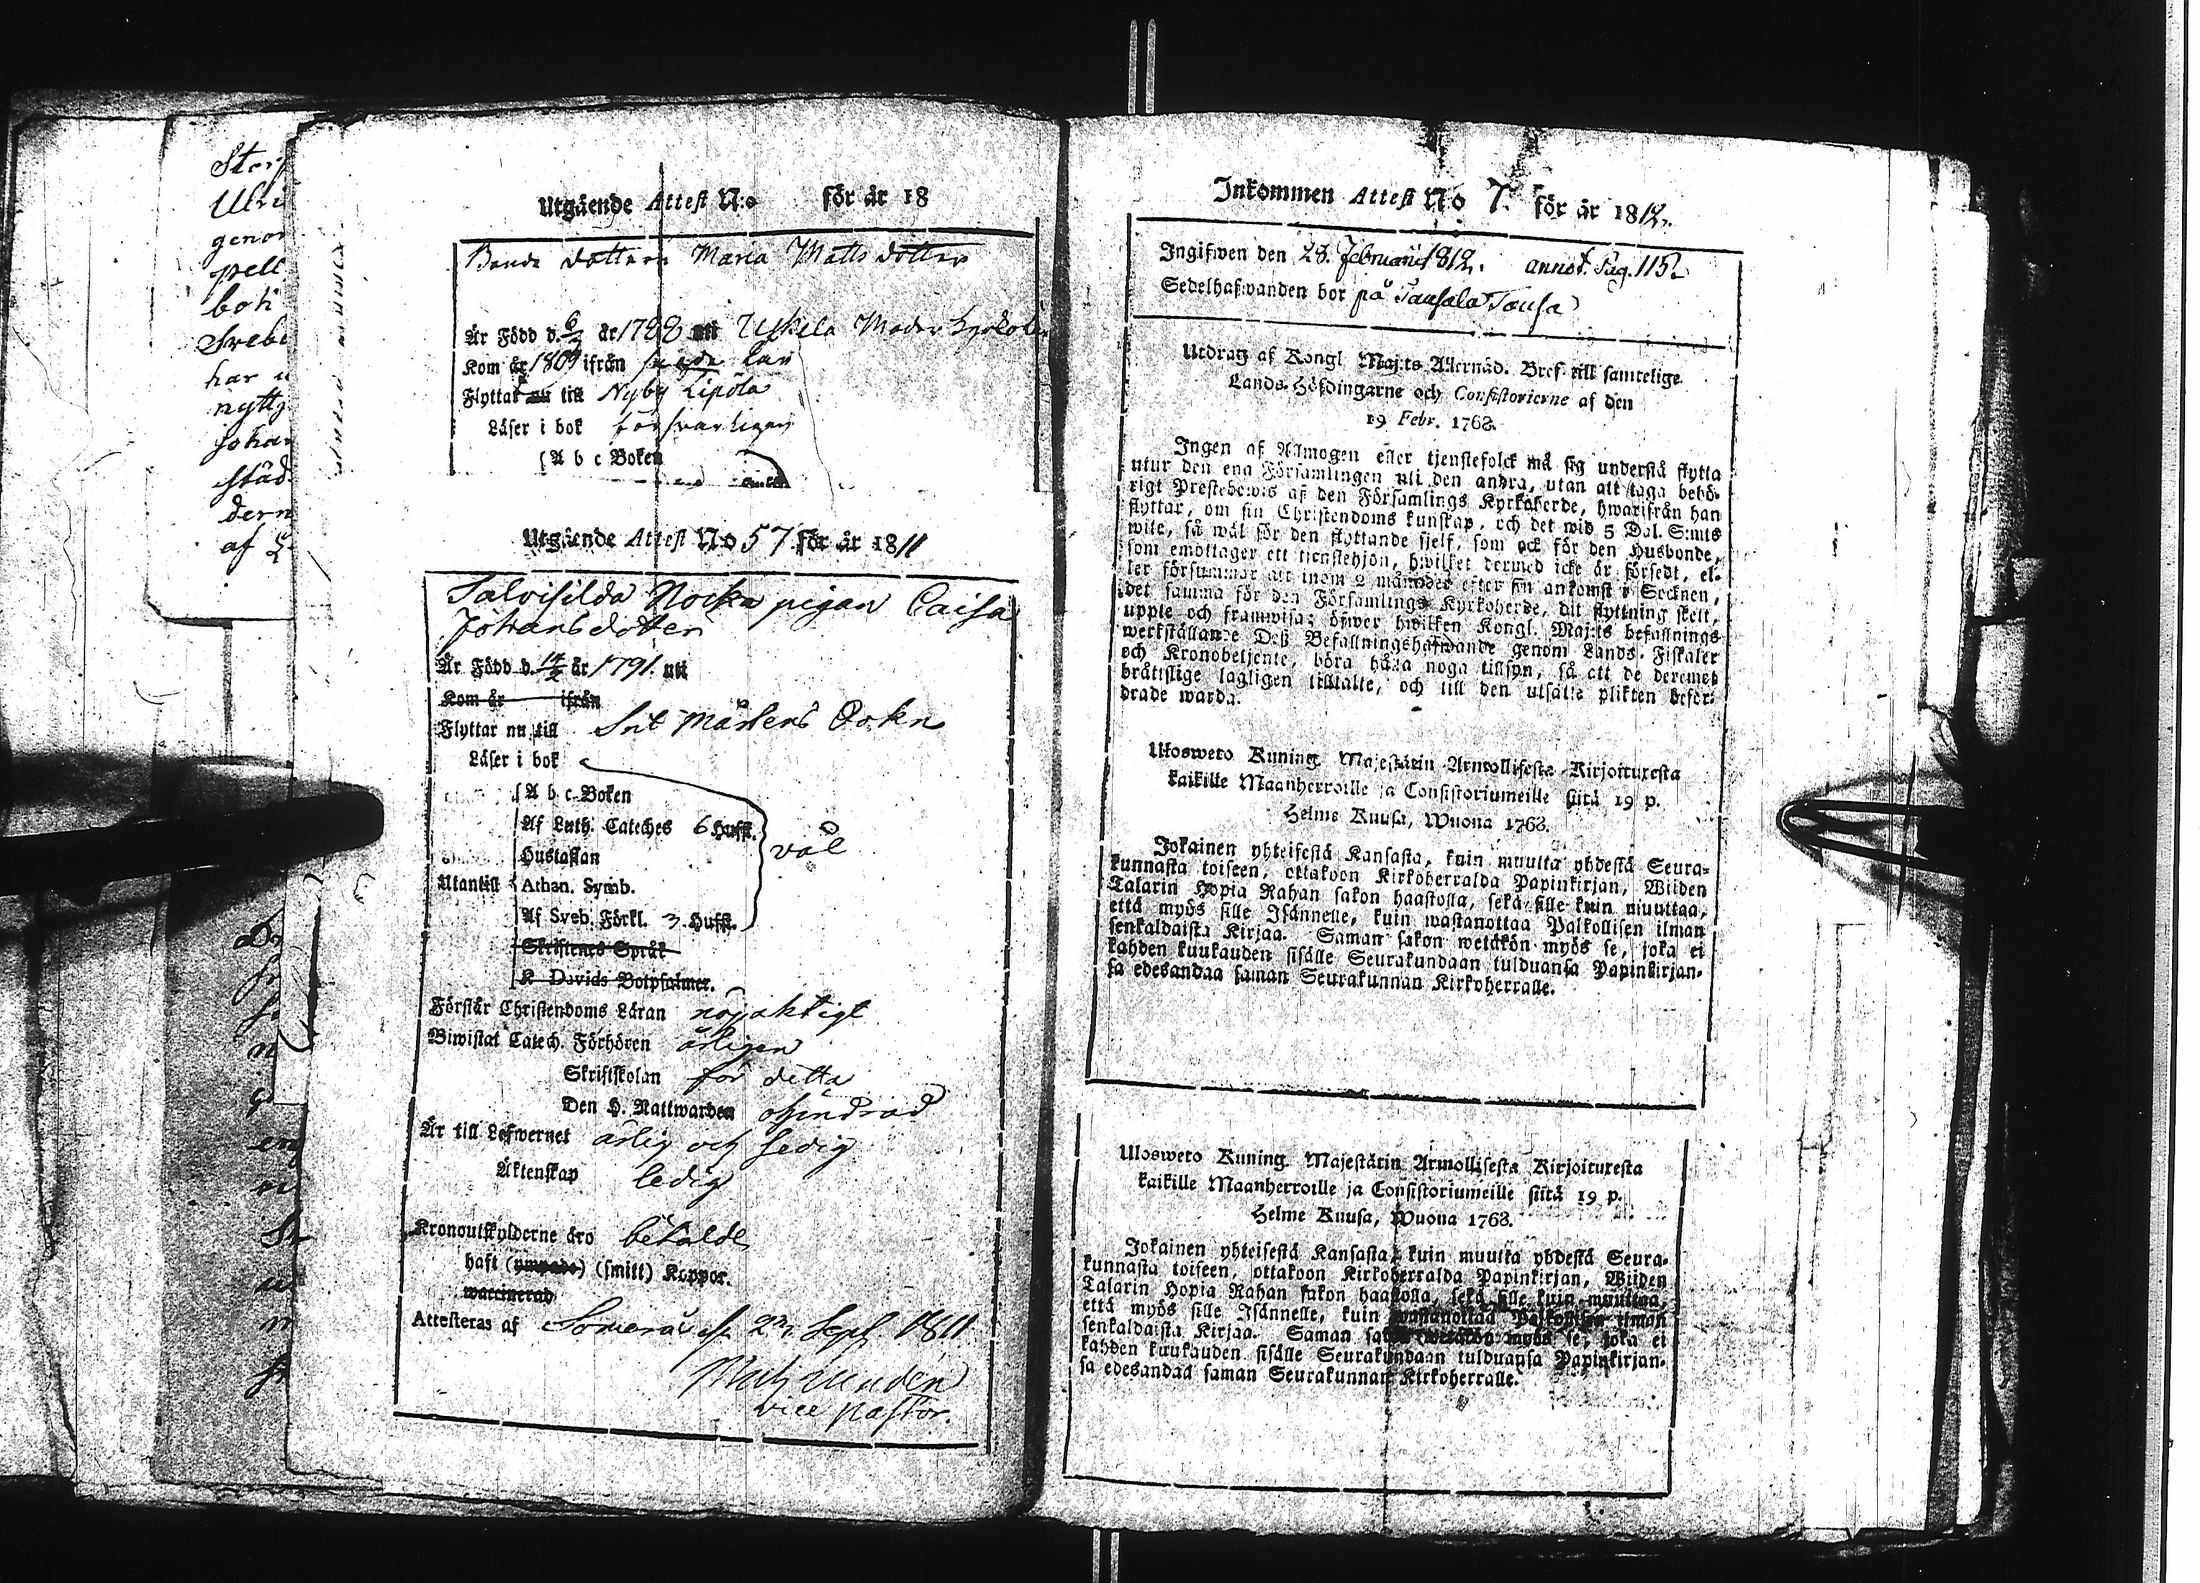 Utgående Attest N:o för år 18
Bonde dottern Maria Matts dotter
År Född d. 6 år 1788 uti Uskela Moder kyrko
Kom år 1809 ifrån
Flyttar nu till Nyby Lipola
Läser i bok försvarligen
A b c Boken
Utgående Attest N:o 57 för år 1811
Salvisilda Nocka pigan Caisa
Johansdotter
År Född d. år 1791. uti
Kom år ifrån
Flyttar nu till S:t Mårtens Sokn
Läser i bok
A b c Boken
Af Luth. Cateches 6 Hufst.
väl
Hustaflan
Utantill Athan. Symb.
Af Sveb. Förkl. 3. Hufst.
Skriftenes Språk
K Davids Botpsalmer.
Förstår Christendoms Läran nöjaktigt
Biwistat Catech. Förhören årligen
Skriftskolan för detta
Den H. Nattwarden ohindrad
Är till Lefwernet ärlig och sedig
Äktenskap ledig
Kronoutskylderne äro betalde
haft (ympade) (smitt) Koppor.
waccinerad
Attesteras af Somero d. Sept. 1811
vice pastor.
Inkommen Attest No 7. för år 1812.
Ingifwen den 28. Februarii 1812. annot. Pag. 115.
Sedelhafwanden bor på
Utdrag af Kongl Maj:ts Allernåd. Bref till samtelige
Lands-Höfdingarne och Consistorierne af den
19 Febr. 1763.
Ingen af Allmogen eller tjenstefolck må sig understå flytta
utur den ena Församlingen uti den andra, utan att taga behö-
rigt Prestebewis af den Församlings Kyrkoherde, hwarifrån han
flyttar, om sin Christendoms kunskap, och det wid 5 Dal. S:mts
wite, så wäl för den flyttande sjelf, som ock för den Husbonde,
som emottager ett tjenstehjon, hwilket dermed icke är försedt, el-
ler försummar att inom 2 månader efter sin ankomst i Socknen,
det samma för den Församlings Kyrkoherde, dit flyttning skett,
uppte och framwisa; öfwer hwilken Kongl. Maj:ts befallnings
werkställande Deß Befallningshafwande genom Lands-Fiskaler
och Kronobetjente, böra hålla noga tillsyn, så att de deremot
bråttslige lagligen tilltalte, och till den utsatte plikten beför-
drade warda.
Ulosweto Kuning. Majestätin Armollisesta Kirjoituresta
kaikille Maanherroille ja Consistoriumeille siitä 19 p.
Helme Kuusa, Wuona 1763.
Jokainen yhteisestä Kansasta, kuin muutta yhdestä Seura-
kunnasta toiseen, ottakoon Kirkoherralda Papinkirjan, Wiiden
Talarin Hopia Rahan sakon haastolla, sekä sille kuin muuttaa,
että myös sille Isännelle, kuin wastanottaa Palkollisen ilman
senkaldaista Kirjaa. Saman sakon wetäkön myös se, joka ei
kahden kuukauden sisälle Seurakundaan tulduansa Papinkirjan-
sa edesandaa saman Seurakunnan Kirkoherralle.
Ulosweto Kuning. Majestätin Armollisesta Kirjoituresta
kaikille Maanherroille ja Consistoriumeille siitä 19 p.
Helme Kuusa, Wuona 1763.
Jokainen yhteisestä Kansasta, kuin muutta yhdestä Seura-
kunnasta toiseen, ottakoon Kirkoherralda Papinkirjan, Wiiden
Talarin Hopia Rahan sakon haastolla, sekä sille kuin muuttaa,
että myös sille Isännelle, kuin wastanottaa Palkollisen ilman
senkaldaista Kirjaa. Saman sakon wetäkön myös se, joka ei
kahden kuukauden sisälle Seurakundaan tulduansa Papinkirjan-
sa edesandaa saman Seurakunnan Kirkoherralle.